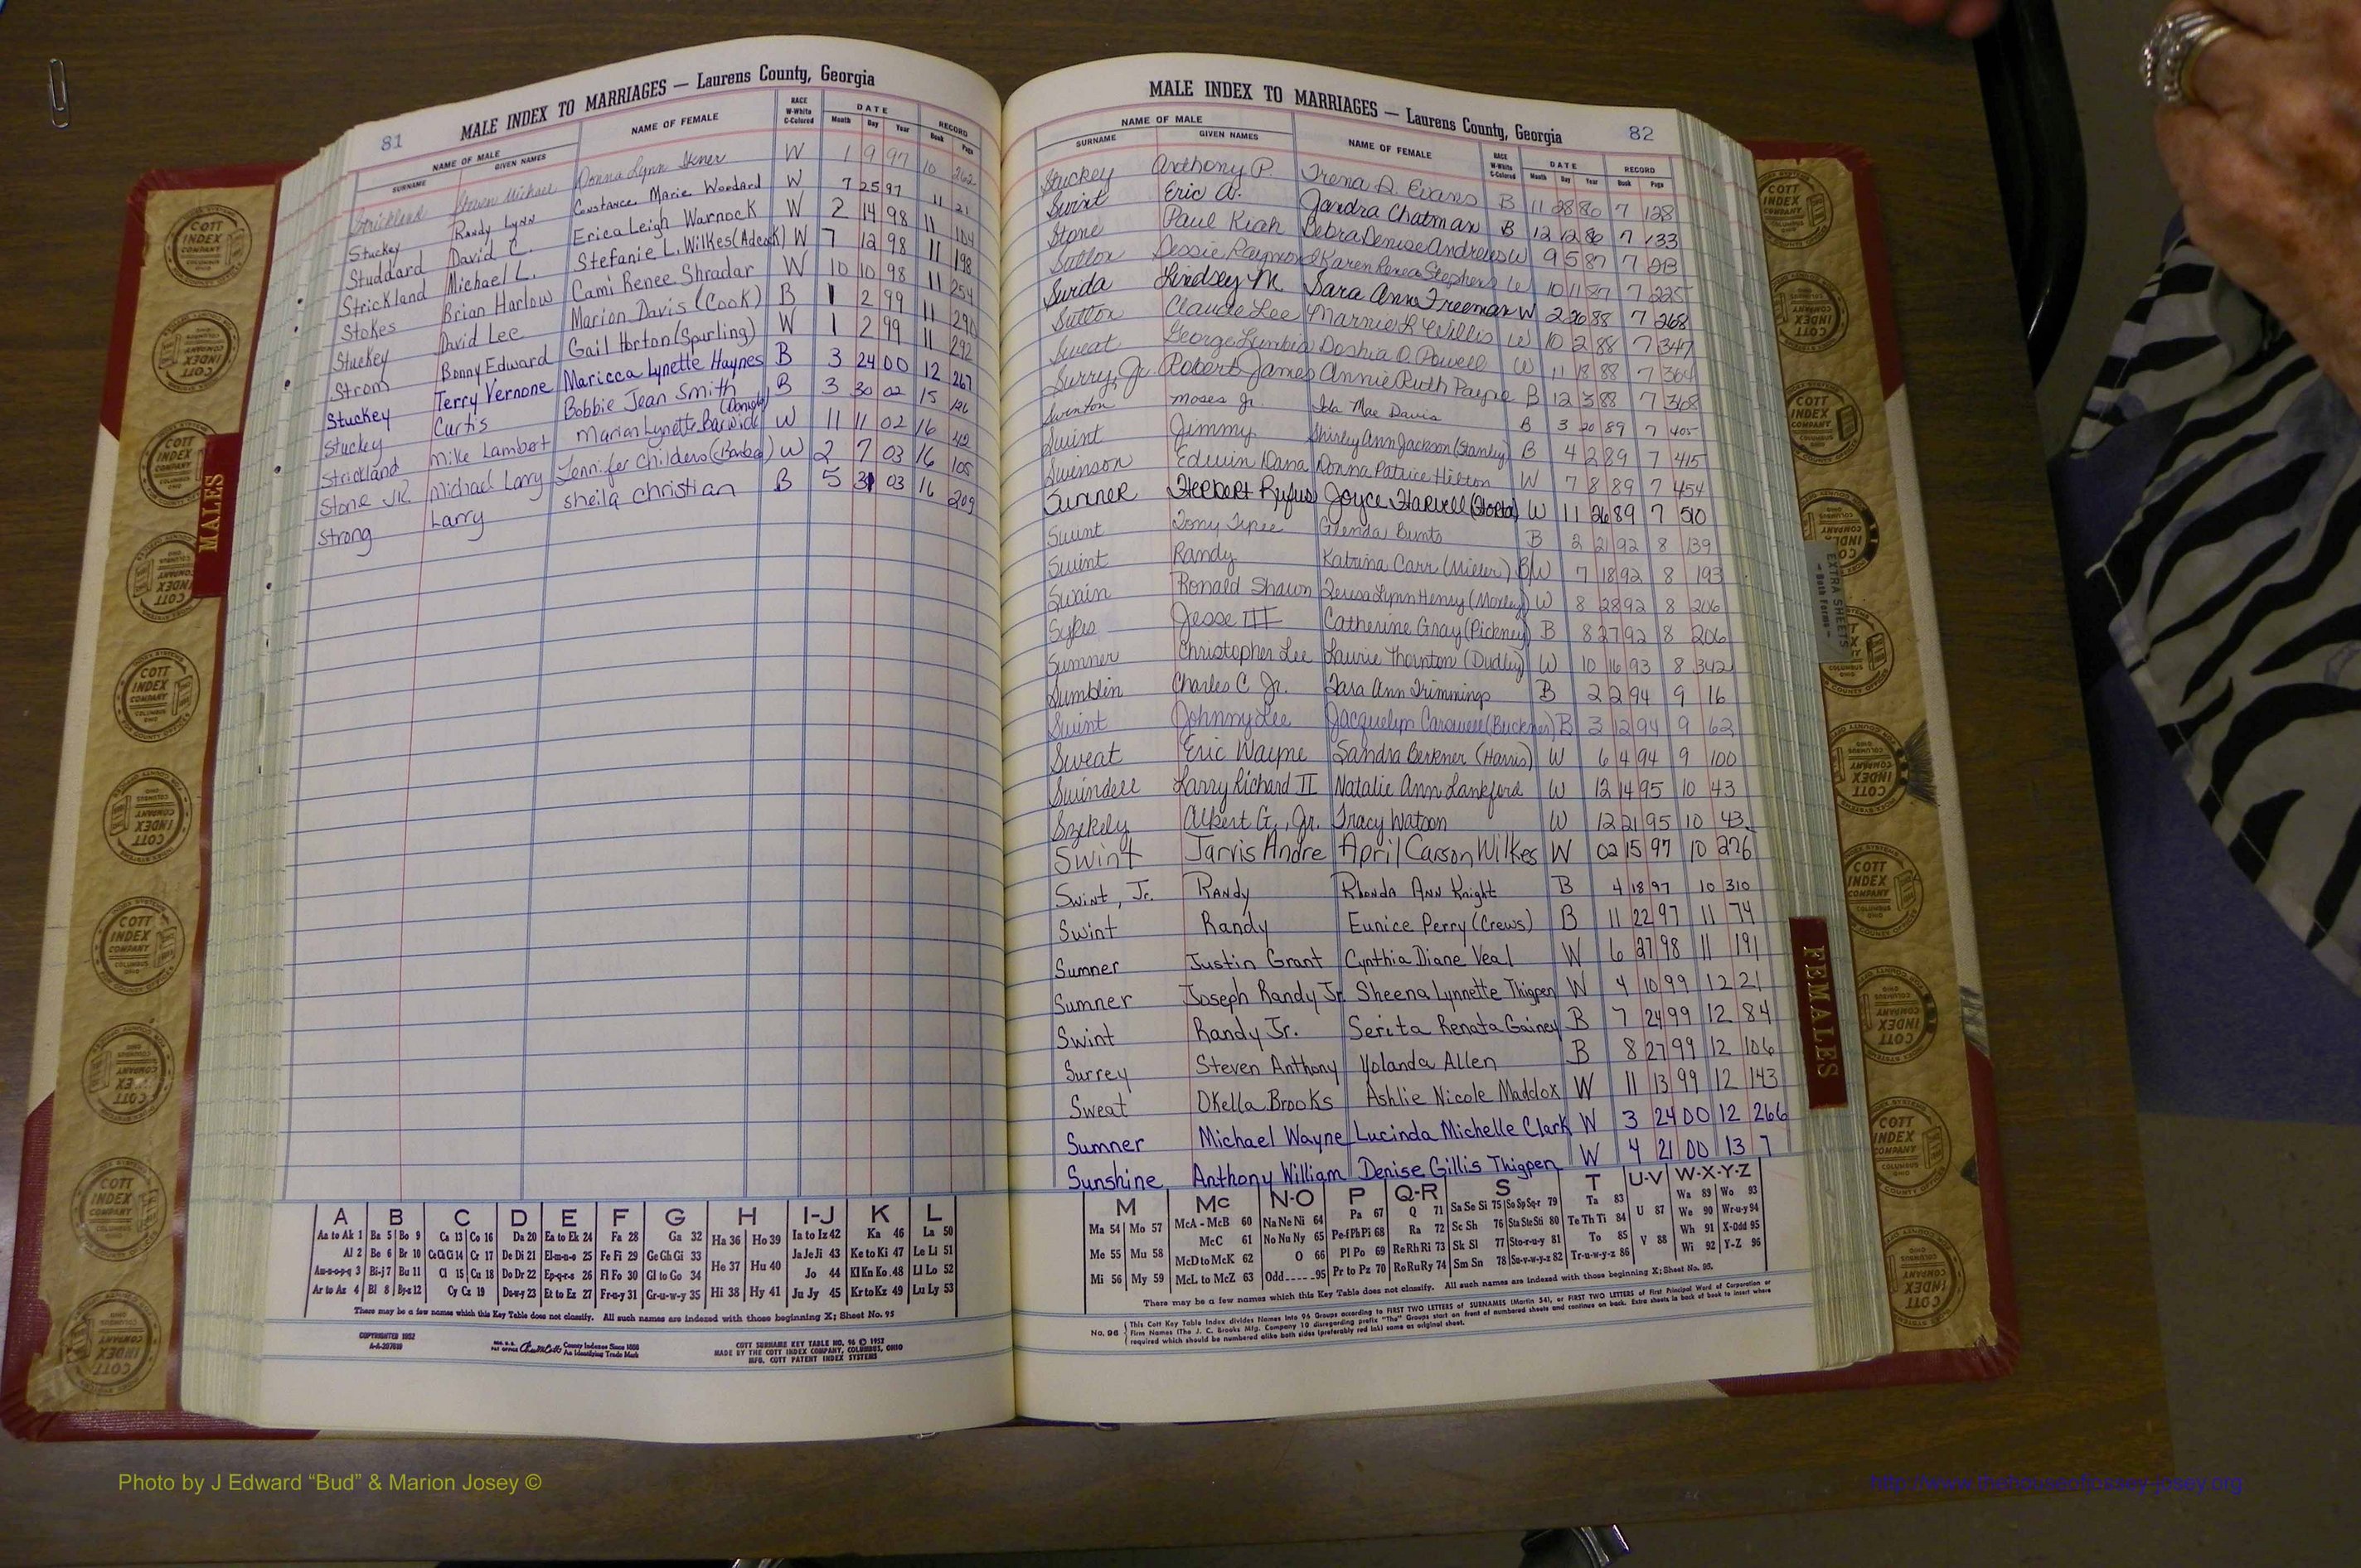 81
MALE INDEX TO MARRIAGES — Laurens County, Georgia
NAME OF MALE
SURNAME GIVEN NAMES NAME OF FEMALE RACE W-White C-Colored DATE Month Day Year RECORD Book Page
Strickland Steven Michael Donna Lynn W 1 9 97 10 262
Stuckey Randy Lynn Constance Marie Woodard W 7 25 97 11 21
Studdard David C. Erica Leigh Warnock W 2 14 98 11 104
Strickland Michael L. Stefanie L. Wilkes (Adcock) W 7 12 98 11 198
Stokes Brian Harlow Cami Renee Shradar W 10 10 98 11 254
Stuckey David Lee Marion Davis (Cook) B 1 2 99 11 290
Strom Bonny Edward Gail Horton (Spurling) W 1 2 99 11 292
Stuckey Terry Vernone Maricca Lynette Haynes B 3 24 00 12 267
Stuckey Curtis Bobbie Jean Smith B 3 30 02 15
Strickland Mike Lambert Marian Lynette Barwick W 11 11 02 16
Stone JR. Michael Larry Jennifer Childers W 2 7 03 16 105
Strong Larry Sheila Christian B 5 31 03 16 209
MALES
A B C D E F G H I-J K L
Aa to Ak 1 Ba 5 Bo 9 Ca 13 Co 16 Da 20 Ea to Ek 24 Fa 28 Ga 32 Ha 36 Ho 39 Ia to Iz 42 Ka 46 La 50
Al 2 Be 6 Br 10 Ce Ch Ci 14 Cr 17 De Di 21 El-m-n-o 25 Fe Fi 29 Ge Gh Gi 33 He 37 Hu 40 Ja Je Ji 43 Ke to Ki 47 Le Li 51
Am-n-o-p-q 3 Bi-j 7 Bu 11 Cl 15 Cu 18 Do Dr 22 Ep-q-r-s 26 Fl Fo 30 Gl to Go 34 Jo 44 Kl Kn Ko 48 Ll Lo 52
Ar to Az 4 Bl 8 By-z 12 Cy Cz 19 Du-w-y 23 Et to Ez 27 Fr-u-y 31 Gr-u-w-y 35 Hi 38 Hy 41 Ju Jy 45 Kr to Kz 49 Lu Ly 53
There may be a few names which this Key Table does not classify. All such names are indexed with those beginning X; Sheet No. 95
COPYRIGHTED 1952
County Indexes Since 1888
An Identifying Trade Mark
COTT SURNAME KEY TABLE NO. 96 © 1952
MADE BY THE COTT INDEX COMPANY, COLUMBUS, OHIO
MFG. COTT PATENT INDEX SYSTEMS
82
MALE INDEX TO MARRIAGES — Laurens County, Georgia
NAME OF MALE
SURNAME GIVEN NAMES NAME OF FEMALE RACE W-White C-Colored DATE Month Day Year RECORD Book Page
Stuckey Anthony P. Trena D. Evans B 11 28 86 7 128
Swint Eric A. Jandra Chatman B 12 12 86 7 133
Stone Paul Kiah Debra Denise Andrews W 9 5 87 7 213
Sutton Dessie Raymond Karen Renea Stephens W 10 11 87 7 225
Surda Lindsey M. Sara Ann Freeman W 2 20 88 7 268
Sutton Claude Lee Marnie L. Willis W 10 2 88 7 347
Sweat George Doshia D. Powell W 11 18 88 7 364
Surry, Jr. Robert James Annie Ruth Payne B 12 3 88 7 368
Swinton Moses Jr. Ida Mae Davis B 3 20 89 7 405
Swint Jimmy Shirley Ann Jackson (Stanley) B 4 2 89 7 415
Swenson Edwin Dana Donna Patrice Hilton W 7 8 89 7 454
Sumner Herbert Rufus Joyce Harvell W 11 26 89 7 510
Swint Tony Glenda Bunts B 2 21 92 8 139
Swint Randy Katrina Carr (Miller) B/W 7 18 92 8 193
Swain Ronald Shawn Teresa Lynn Henry (Moxley) W 8 28 92 8 206
Sykes Jesse III Catherine Gray (Pickney) B 8 27 92 8 206
Sumner Christopher Lee Laurie Thornton (Dudley) W 10 16 93 8 342
Sumblin Charles C. Jr. Tara Ann Trimmings B 2 2 94 9 16
Swint Johnny Lee Jacquelyn B 3 12 94 9 62
Sweat Eric Wayne Sandra Berkner (Harris) W 6 4 94 9 100
Swindell Larry Richard II Natalie Ann Lankford W 12 14 95 10 43
Szekely Albert G., Jr. Tracy Watson W 12 21 95 10 43
Swint Jarvis Andre April Carson Wilkes W 02 15 97 10 276
Swint, Jr. Randy Rhonda Ann Knight B 4 18 97 10 310
Swint Randy Eunice Perry (Crews) B 11 22 97 11 74
Sumner Justin Grant Cynthia Diane Veal W 6 27 98 11 191
Sumner Joseph Randy Jr Sheena Lynnette Thigpen W 4 10 99 12 21
Swint Randy Jr. Serita Renata Gainey B 7 24 99 12 84
Surrey Steven Anthony Yolanda Allen B 8 27 99 12 106
Sweat OKella Brooks Ashlie Nicole Maddox W 11 13 99 12 143
Sumner Michael Wayne Lucinda Michelle Clark W 3 24 00 12 266
Sunshine Anthony William Denise Gillis Thigpen W 4 21 00 13 7
EXTRA SHEETS
FEMALES
M Mc N-O P Q-R S T U-V W-X-Y-Z
Ma 54 Mo 57 McA - McB 60 Na Ne Ni 64 Pa 67 Q 71 Sa Se Si 75 So Sp Sq-r 79 Ta 83 U 87 Wa 89 Wo 93
Me 55 Mu 58 McC 61 No Nu Ny 65 Pe-f Ph Pi 68 Ra 72 Sc Sh 76 Sta Ste Sti 80 Te Th Ti 84 We 90 Wr-u-y 94
McD to McK 62 O 66 Pl Po 69 Re Rh Ri 73 Sk Sl 77 Sto-r-u-y 81 To 85 V 88 Wh 91 X-Odd 95
Mi 56 My 59 McL to McZ 63 Odd-----95 Pr to Pz 70 Ro Ru Ry 74 Sm Sn 78 Su-v-w-y-z 82 Tr-u-w-y-z 86 Wi 92 Y-Z 96
There may be a few names which this Key Table does not classify. All such names are indexed with those beginning X; Sheet No. 95.
No. 96
This Cott Key Table Index divides Names into 96 Groups according to FIRST TWO LETTERS of SURNAMES (Martin 54), or FIRST TWO LETTERS of First Principal Word of Corporation or
Firm Names (The J. C. Brooks Mfg. Company 10 disregarding prefix "The" Groups start on front of numbered sheets and continue on back. Extra sheets in back of book to insert where
required which should be numbered alike both sides (preferably red ink) same as original sheet.
COTT INDEX COMPANY COLUMBUS OHIO
Photo by J Edward “Bud” & Marion Josey ©
http://www.thehouseofjossey-josey.org